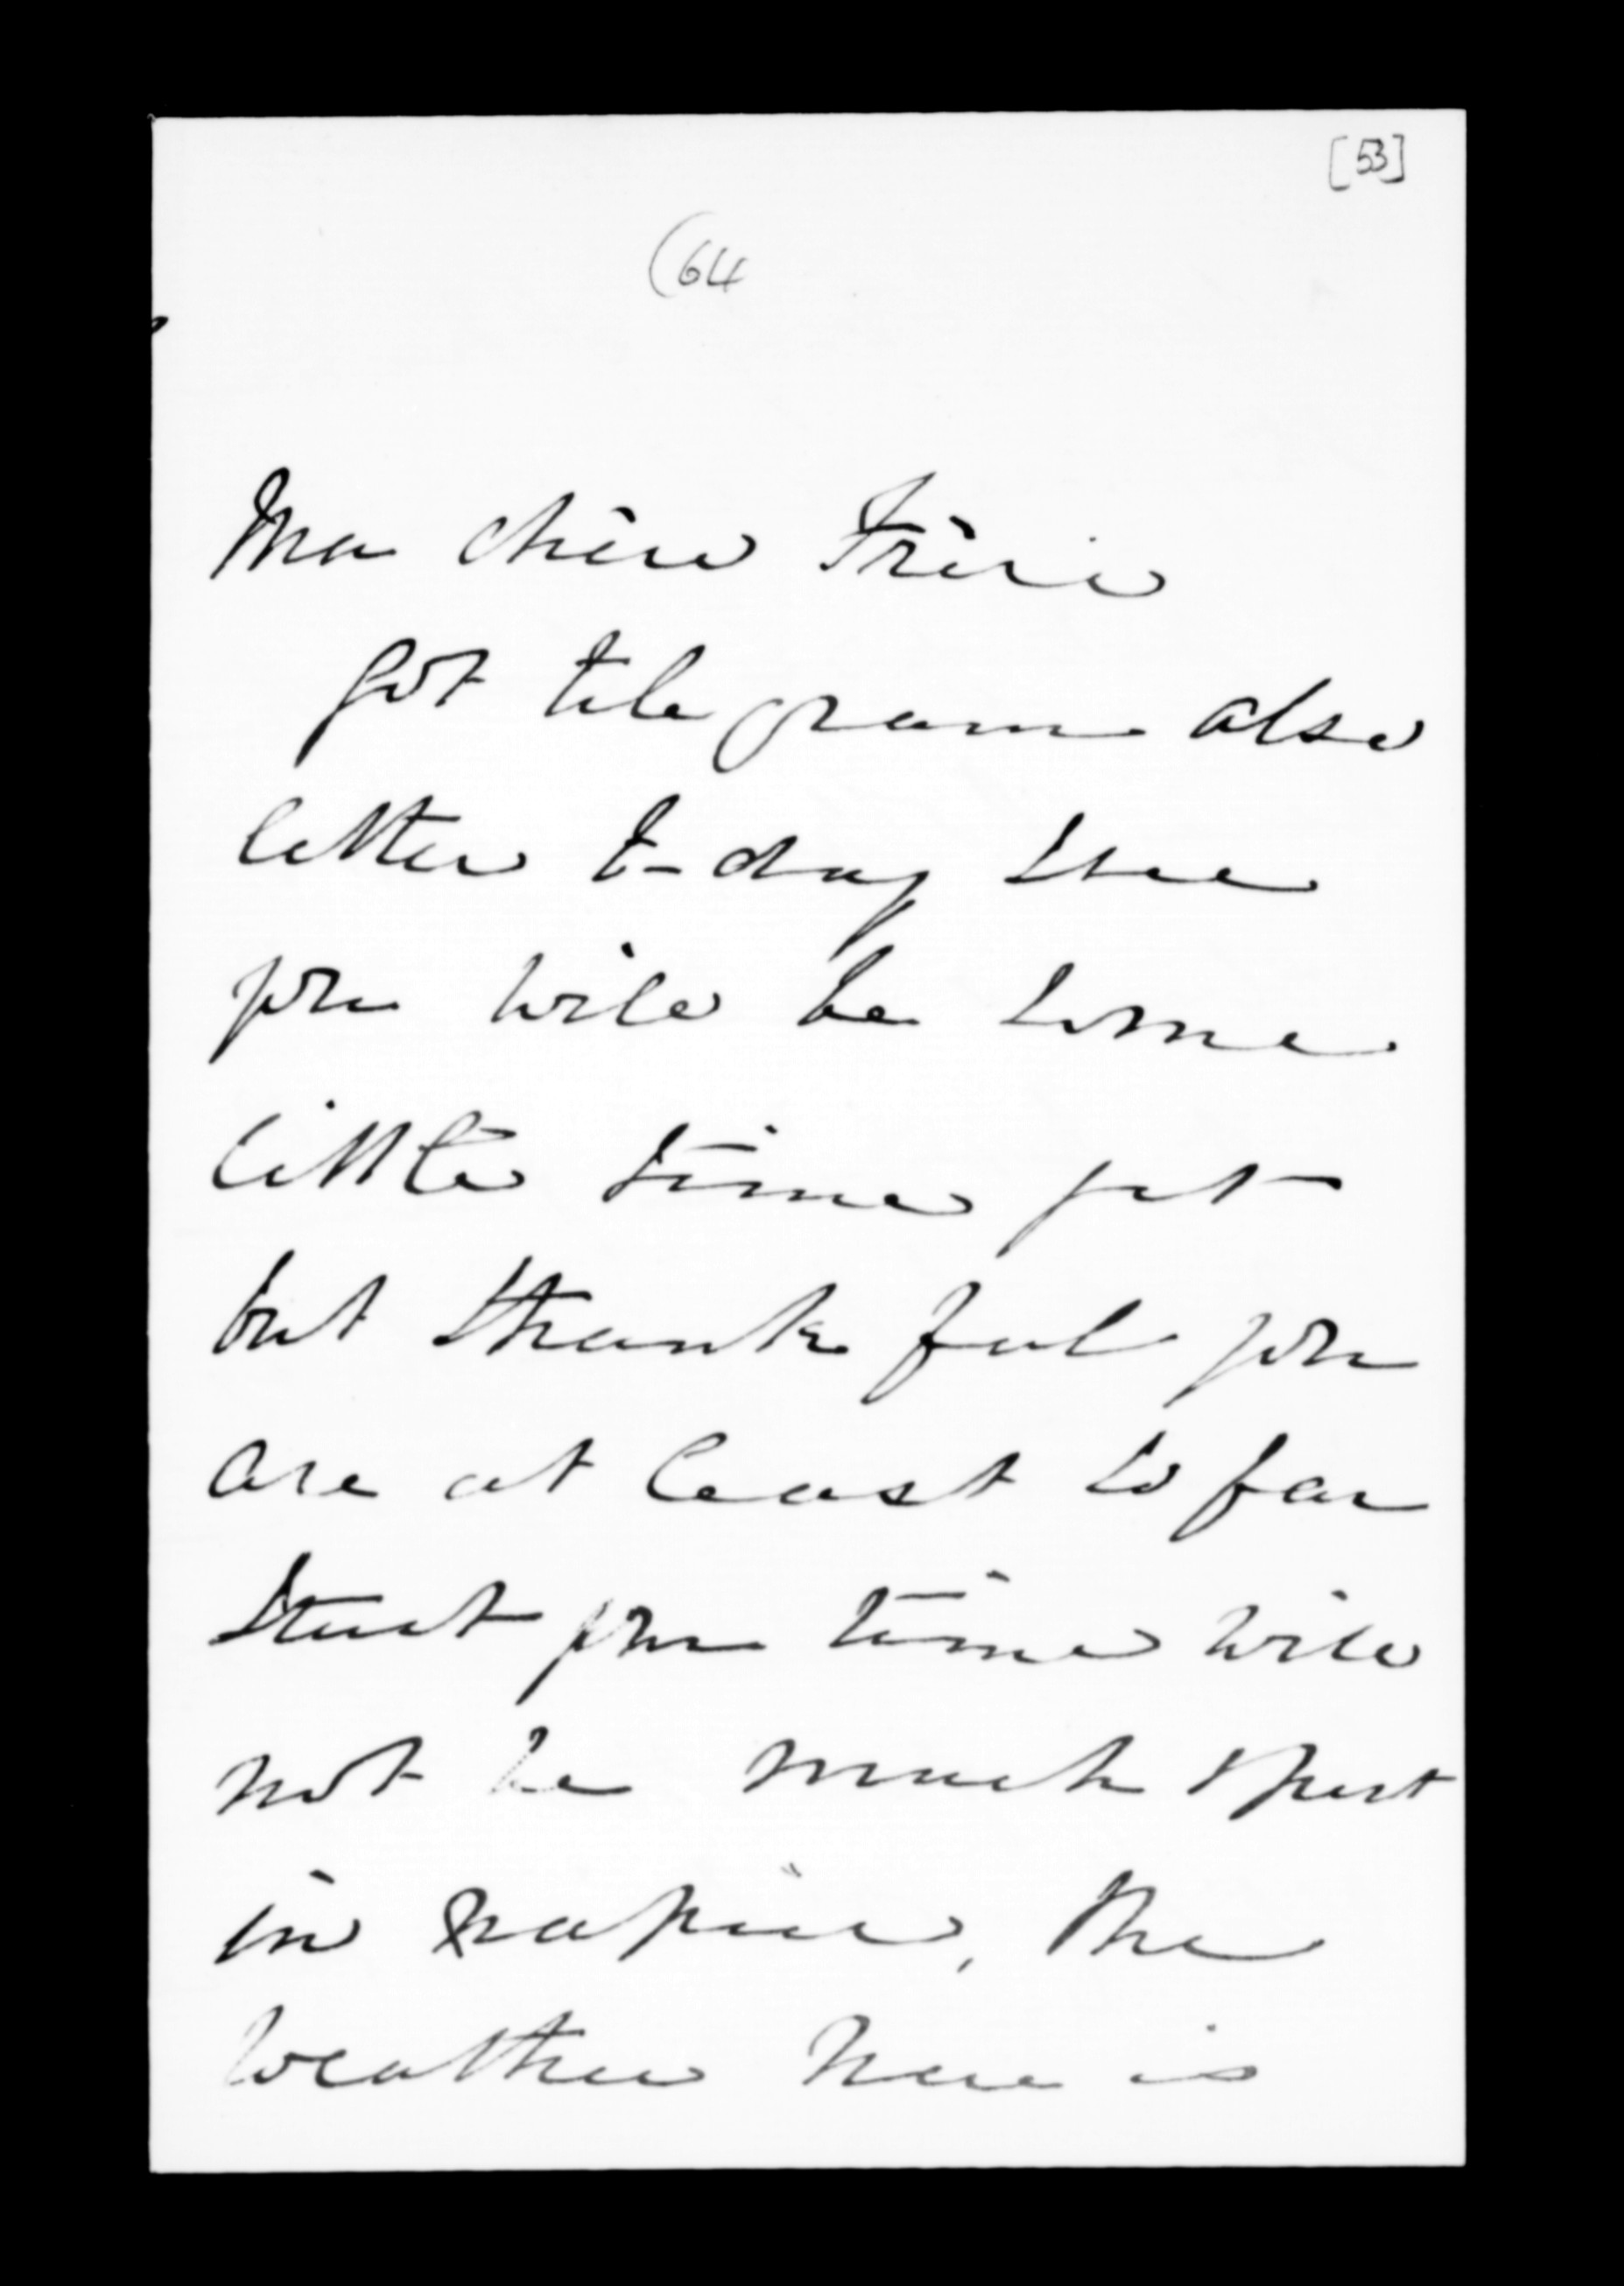 [53]
(64
Ma chère Frère
Got telegram also
letter to-day I see
you will be some
little time yet
but thankful you
are at least so far
trust your time will
not be much spent
in Napier, the
weather here is